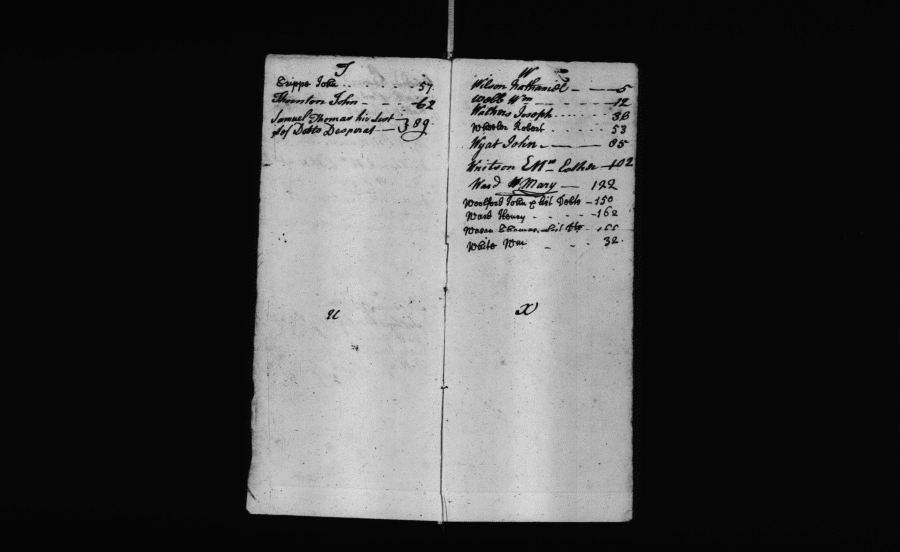 T
Trippe John 57
Thornton John 62
Samuel Thomas his List
of Debts Desperat 389
U
W
Wilson Nathaniel 5
Webb Wm 12
Wathers Joseph 38
Wheeler Robert 53
Wyat John 85
Writson Esther 102
Ward Mary 122
Woolford John Debts 150
Ward Henry 162
Thomas
White Wm 32
X